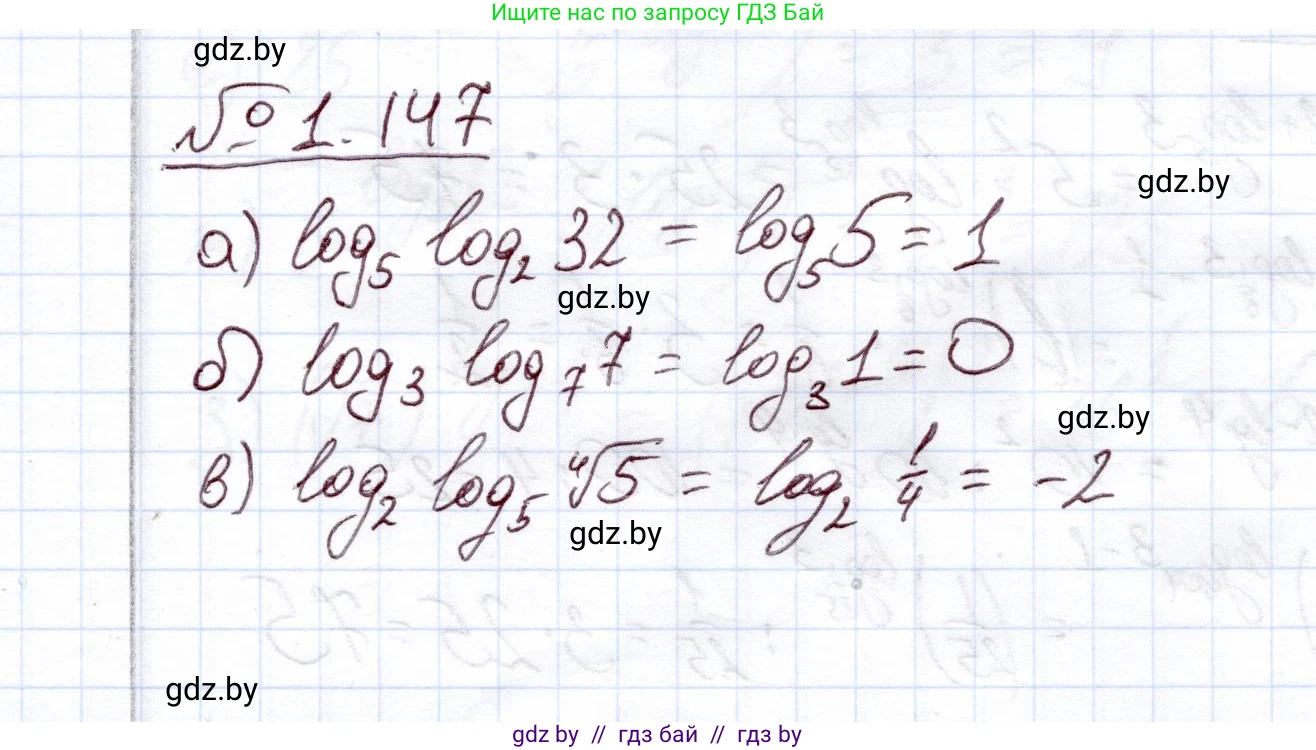 Ищите нас по запросу ГДЗ Бай
gdz.by
№ 1.147
gdz.by
а) log₅ log₂ 32 = log₅ 5 = 1
gdz.by
б) log₃ log₇ 7 = log₃ 1 = 0
gdz.by
в) log₂ log₅ ⁴√5 = log₂ 1/4 = -2
gdz.by
gdz.by
gdz.by // гдз бай // гдз by